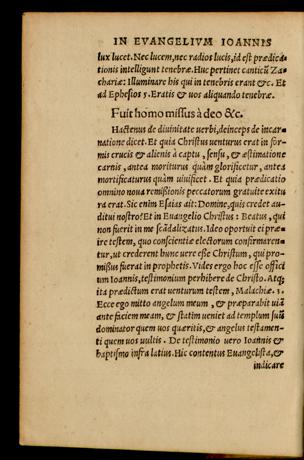 IN EVANGELIVM IOANNIS
lux lucet. Nec lucem, nec radios lucis, id est prædica-
tionis intelligunt tenebræ. Huc pertinet canticũ Za-
chariæ: Illuminare his qui in tenebris erant &c. Et
ad Ephesios 5. Eratis & uos aliquando tenebræ.
Fuit homo missus à deo &c.
Hactenus de diuinitate uerbi, deinceps de incar-
natione dicet. Et quia Christus uenturus erat in for-
mis crucis & alienis à captu, sensu, & æstimatione
carnis, antea moriturus quàm glorificetur, antea
mortificaturus quàm uiuificet. Et quia prædicatio
omnino noua remißionis peccatorum gratuitæ exitu
ra erat. Sic enim Esaias ait: Domine, quis credet au-
ditui nostro? Et in Euangelio Christus: Beatus, qui
non fuerit in me scãdalizatus. Ideo oportuit ei præ-
ire testem, quo conscientiæ electorum confirmaren-
tur, ut crederent hunc uere esse Christum, qui pro-
mißus fuerat in prophetis. Vides ergo hoc esse offici
um Ioannis, testimonium perhibere de Christo. Atq;
ita prædictum erat uenturum testem, Malachiæ. 3.
Ecce ego mitto angelum meum, & præparabit uiã
ante faciem meam, & statim ueniet ad templum suũ
dominator quem uos quæritis, & angelus testamen-
ti quem uos uultis. De testimonio uero Ioannis &
baptismo infra latius. Hic contentus Euangelista, &
indicare